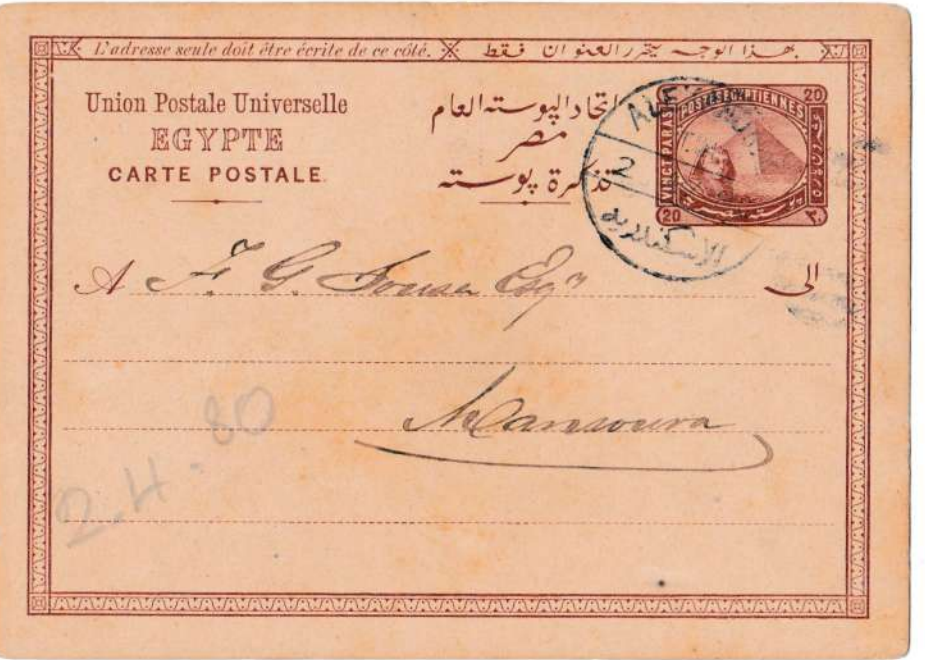 L'adresse seule doit être écrite de ce côté. بهذا الوجه يتحرر العنوان فقط
Union Postale Universelle
EGYPTE
CARTE POSTALE
اتحاد البوسته العام
مصر
تذكرة بوسته
POSTES EGYPTIENNES
VINGT PARAS
20
20
٢٠
2
الاسكندرية
A F. G. Esqr
الى
Mansoura
2.4.80